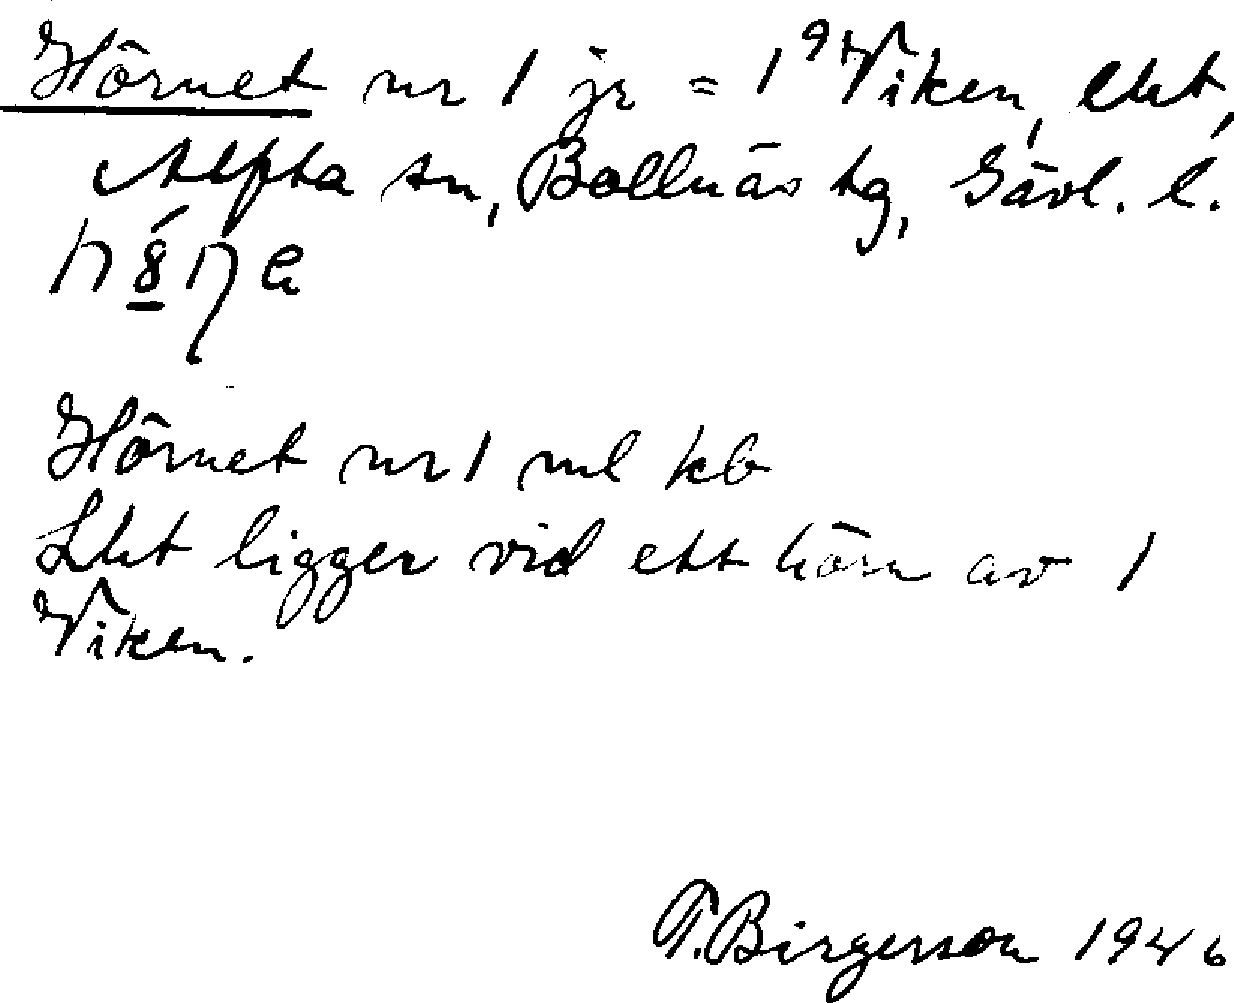 Hörnet nr 1 jr = 1⁹⁴ Viken, lht,
Alfta sn, Bollnäs tg, Gävl. l.
Hörnet nr 1 ml kb
Lht ligger vid ett hörn av 1
Viken.
F. Birgerson 1946